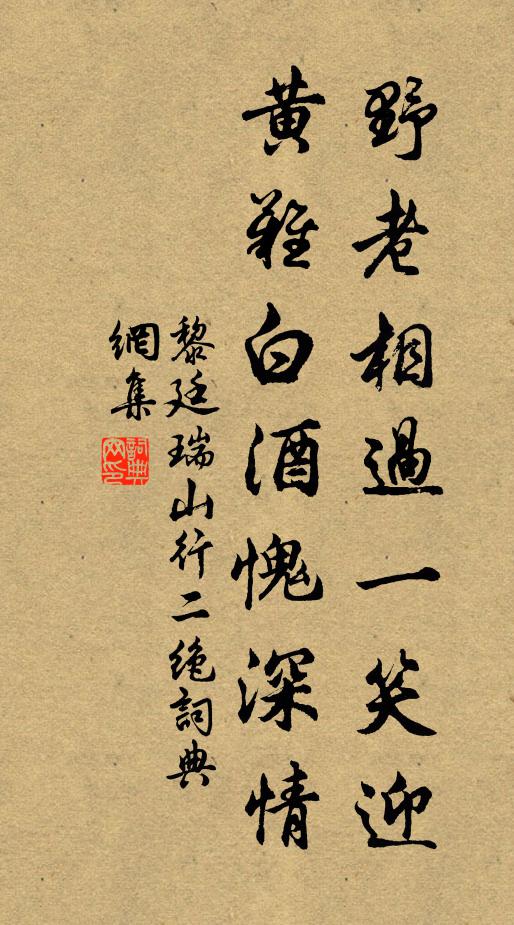 野老相過一笑迎
黃雞白酒愧深情
黎廷瑞山行二絕詞典
網集
詞典
网印